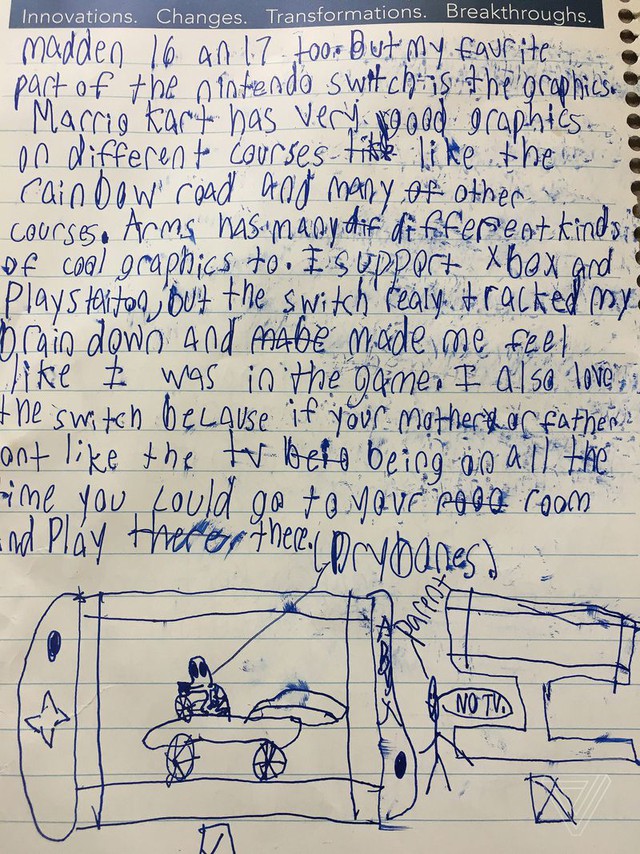 Innovations. Changes. Transformations. Breakthroughs.
madden 16 an 17 too. But my favrite
part of the nintendo switch is the graphics.
Marrio kart has very good graphics
on different courses like like the
rainbow road and many of other
courses. Arms has many dif different kinds
of cool graphics to. I support xbox and
Playstaiton, but the switch realy tracked my
brain down and mabe made me feel
like I was in the game. I also love
the switch because if your mother or father
ont like the tv beia being on all the
ime you could go to your rooo room
nd Play there, there.
(Drybones)
parent
ABXY
NO TV.